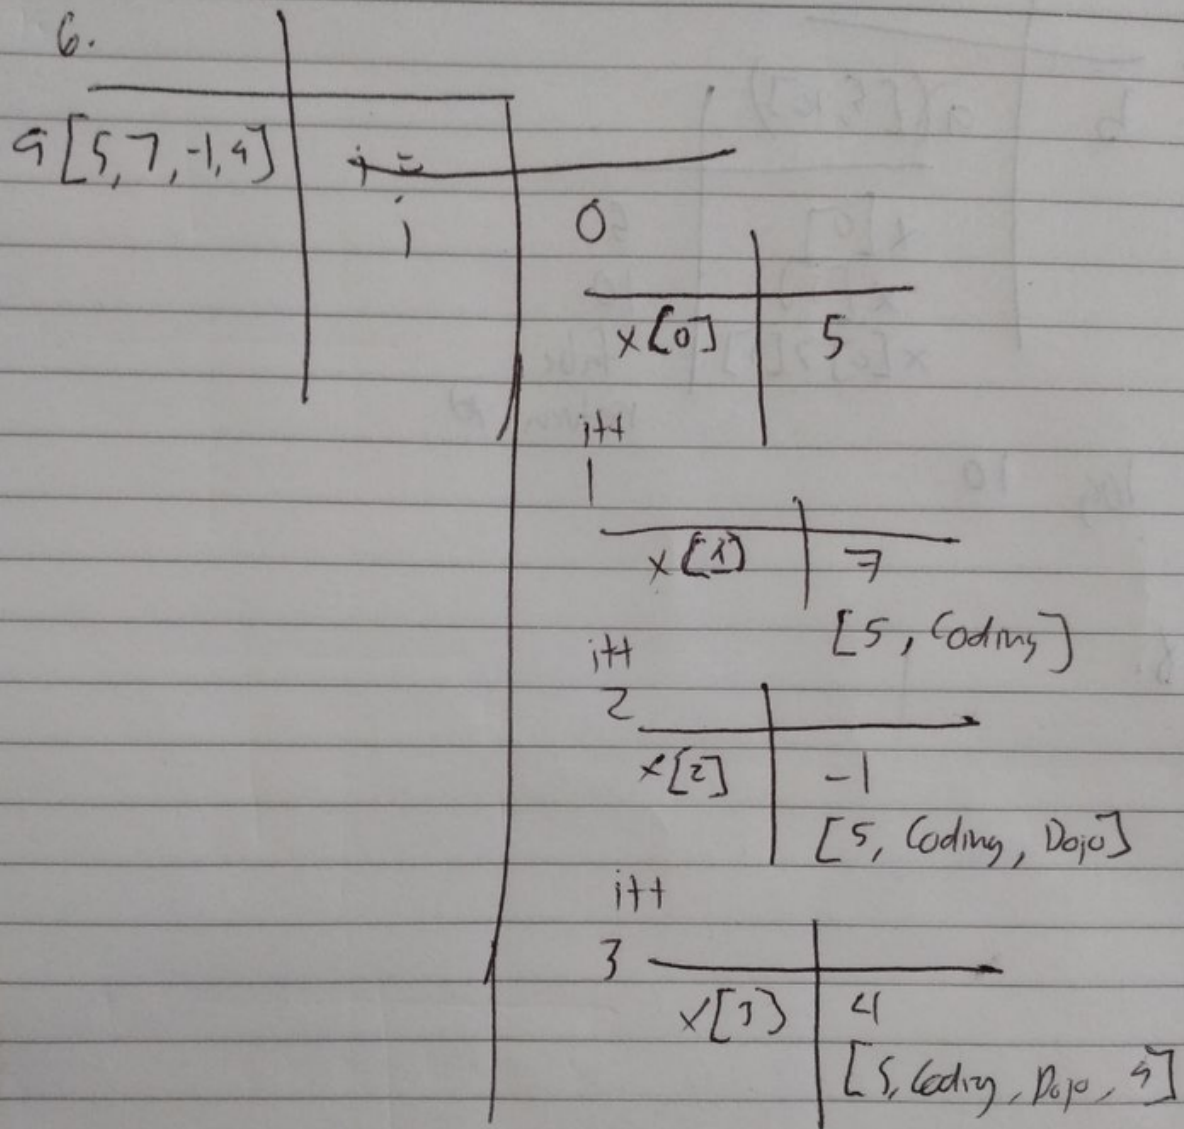 6.
a[5,7,-1,4]
i =
i
0
x[0] 5
i++
1
x[1] 7
[5, Coding]
i++
2
x[2] -1
[5, Coding, Dojo]
i++
3
x[3] 4
[5, Coding, Dojo, 4]